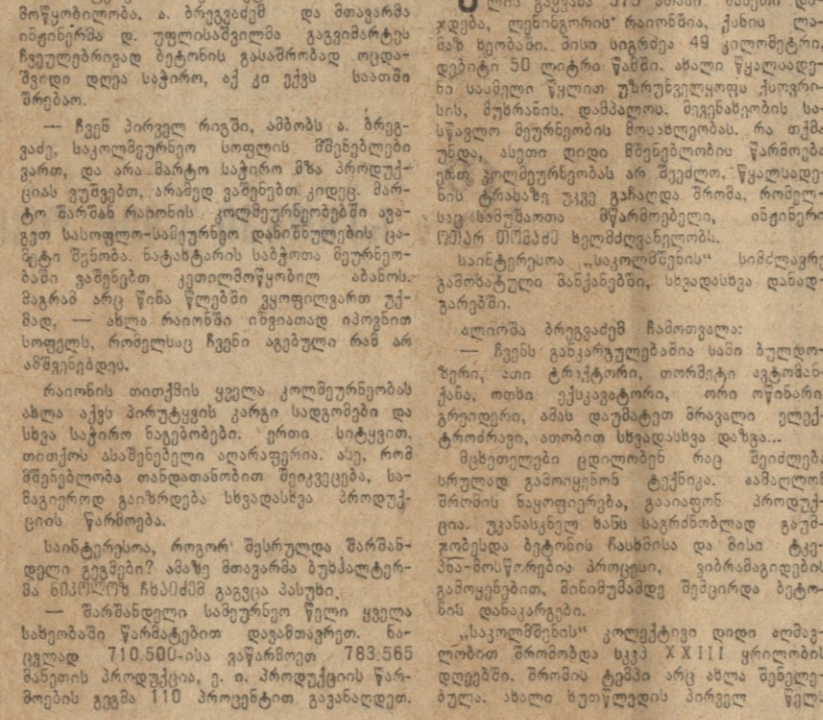 მოწყობილობა. ა. ბრეგვაძემ და მთავარმა
ინჟინერმა დ. უფლისაშვილმა გაგვიმარტეს
ჩვეულებრივად ბეტონის გასაშრობად ოცდა-
შვიდი დღეა საჭირო, აქ კი ექვს საათში
შრებაო.
— ჩვენ პირველ რიგში, ამბობს ა. ბრეგ-
ვაძე, საკოლმეურნეო სოფლის მშენებლები
ვართ, და არა მარტო საჭირო მზა პროდუქ-
ციას ვუშვებთ, არამედ ვაშენებთ კიდეც. მარ-
ტო შარშან რაიონის კოლმეურნეობებში ავა-
გეთ სასოფლო-სამეურნეო დანიშნულების ცა-
მეტი შენობა. ნატახტარის საბჭოთა მეურნეო-
ბაში ვაშენებთ კეთილმოწყობილ აბანოს.
მაგრამ არც წინა წლებში ვყოფილვართ უქ-
მად, — ახლა რაიონში იშვიათად იპოვნით
სოფელს, რომელსაც ჩვენი აგებული რამ არ
ამშვენებდეს.
რაიონის თითქმის ყველა კოლმეურნეობას
ახლა აქვს პირუტყვის კარგი სადგომები და
სხვა საჭირო ნაგებობები. ერთი სიტყვით,
თითქოს ასაშენებელი აღარაფერია. ასე, რომ
მშენებლობა თანდათანობით შეიკვეცება, სა-
მაგიეროდ გაიზრდება სხვადასხვა პროდუქ-
ციის წარმოება.
საინტერესოა, როგორ შესრულდა შარშან-
დელი გეგმები? ამაზე მთავარმა ბუხჰალტერ-
მა ნიკოლოზ ჩხაიძემ გაგვცა პასუხი.
— შარშანდელი სამეურნეო წელი ყველა
სახეობაში წარმატებით დავამთავრეთ. ნა-
ცვლად 710.500-ისა ვაწარმოეთ 783.565
მანეთის პროდუქცია, ე. ი. პროდუქციის წარ-
მოების გეგმა 110 პროცენტით გავანაღდეთ.
ჯდება, ლენინგორის რაიონშია, ქსნის ლა-
მაზ ხეობაში. მისი სიგრძეა 49 კილომეტრი,
დებიტი 50 ლიტრი წამში. ახალი წყალსადე-
ნი სასმელი წყლით უზრუნველყოფს ქსოვრი-
სის, მუხრანის. დამპალოს. მევენახეობის სა-
სწავლო მეურნეობის მოსახლეობას. რა თქმა
უნდა, ასეთი დიდი მშენებლობის წარმოება
ერთ კოლმეურნეობას არ შეეძლო. წყალსადე-
ნის ტრასაზე უკვე გაჩაღდა შრომა, რომელ-
საც სამუშაოთა მწარმოებელი, ინჟინერი
ოთარ თომაძე ხელმძღვანელობს.
საინტერესოა „საკოლმშენის“ სიმძლავრე
გამოხატული მანქანებში, სხვადასხვა დანად-
გარებში.
ალიოშა ბრეგვაძემ ჩამოთვალა:
— ჩვენს განკარგულებაშია სამი ბულდო-
ზერი, ათი ტრაქტორი, თორმეტი ავტომან-
ქანა, ოთხი ექსკავატორი, ორი ოწინარი
გრეიდერი, ამას დაუმატეთ მრავალი ელექ-
ტროძრავი, ათობით სხვადასხვა დაზგა...
მცხეთელები ცდილობენ რაც შეიძლება
სრულად გამოიყენონ ტექნიკა. აამაღლონ
შრომის ნაყოფიერება, გააიაფონ პროდუქ-
ცია. უკანასკნელ ხანს საგრძნობლად გაუმ-
ჯობესდა ბეტონის ჩასხმისა და მისი ტკე-
პნა-მოსწორების პროცესი, ვიბრამაგიდების
გამოყენებით, მინიმუმამდე შემცირდა ბეტო-
ნის დანაკარგები.
„საკოლმშენის“ კოლექტივი დიდი აღმავ-
ლობით შრომობდა სკკპ XXIII ყრილობის
დღეებში. შრომის ტემპი არც ახლა შენელე-
ბულა. ახალი ხუთწლედის პირველ წელს